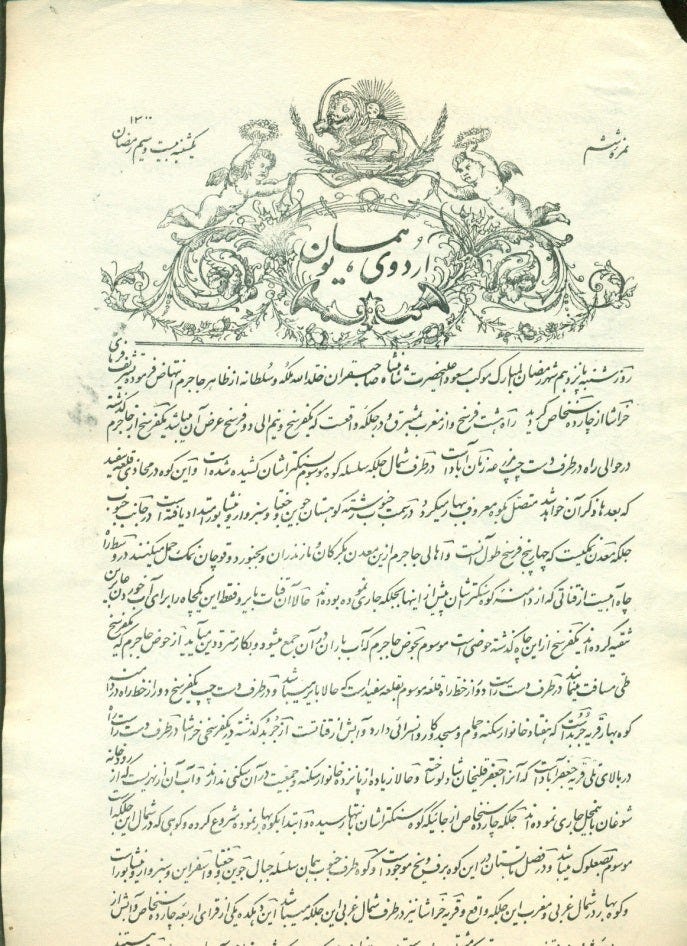 نمره ششم
یکشنبه بیست و سیم رمضان ۱۳۰۰
اردوی همایون
روز شنبه پانزدهم شهر رمضان المبارک موکب مسعود اعلیحضرت شاهنشاه صاحبقران خلد الله ملکه و سلطانه از ظاهر جاجرم انتهاض فرموده تشریف فرمای
خراشا از چارده سنخاص گردید راه هشت فرسخ و از مغرب بمشرق و در جلگه واقعست که یکفرسخ و نیم الی دو فرسخ عرض آن میباشد یکفرسخ از جاجرم گذشته
در حوالی راه در طرف دست چپ مزرعه آباد است در طرف شمال جلگه سلسله کوه موسوم بسنکتراشان کشیده شده است و این کوه در محاذی قلعه سفید
که بعدها ذکر آن خواهد شد متصل بکوه معروف ببهار میگردد در سمت جنوب رشته کوهستان جوین جغتای و سبزوار و نیشابور امتداد یافته است در جانب جنوب
جلگه معدن نمکیست که چهار پنج فرسخ طول آنست و اهالی جاجرم از این معدن نمک بگرگان و مازندران و بجنورد و قوچان نمک حمل میکنند در وسط راه
چاه آبیست از قناتی که از دامنه کوه سنکتراشان پیش از اینها بجلگه جاری نموده بوده‌اند حالا آن قنات بایر و فقط این یکچاه را برای آب خوردن عابرین
تنقیه کرده‌اند یکفرسخ از این چاه گذشته حوضی است موسوم بحوض حاجرم که آب باران در آن جمع میشود و بکار مترددین میآید از حوض جاجرم که یکفرسخ
طی مسافت مینمایند در طرف دست راست دور از خط راه قلعه موسوم بقلعه سفید است که حالا بایر میباشد و در طرف دست چپ یکفرسخ دور از خط راه در دامنه
کوه بهار قریه جربد است که هفتاد خانوار سکنه و حمام و مسجد و کاروانسرائی دارد و آبش از قناتست از جربد گذشته در یکفرسخی خراشا در طرف دست راست راه
در بالای تلی قریه جعفرآباد است که آنرا جعفر قلیخان شادلو ساخته و حالا زیاده از پانزده خانوار سکنه جمعیت در آن سکنی ندارند و آب آن از نهریست که از رودخانه
شوغان باینمحل جاری نموده‌اند جلگه چارده سنخاص از جائیکه کوه سنکتراشان بانتها رسیده و ابتدا بکوه بهار نموده شروع کرده و کوهی که در شمال این جلگه است
موسوم بصعلوک میباشد و در فصل تابستان در این کوه برف و یخ موجود است و کوه طرف جنوب همان سلسله جبال جوین جغتای و اسفراین و سبزوار و نیشابور است
و کوه بهار در شمال غربی و مغرب این جلگه واقع و قریه خراشا نیز در طرف شمال غربی این جلگه میباشد این دهکده یکی از قرای اربعه چارده سنخاص و آبش از